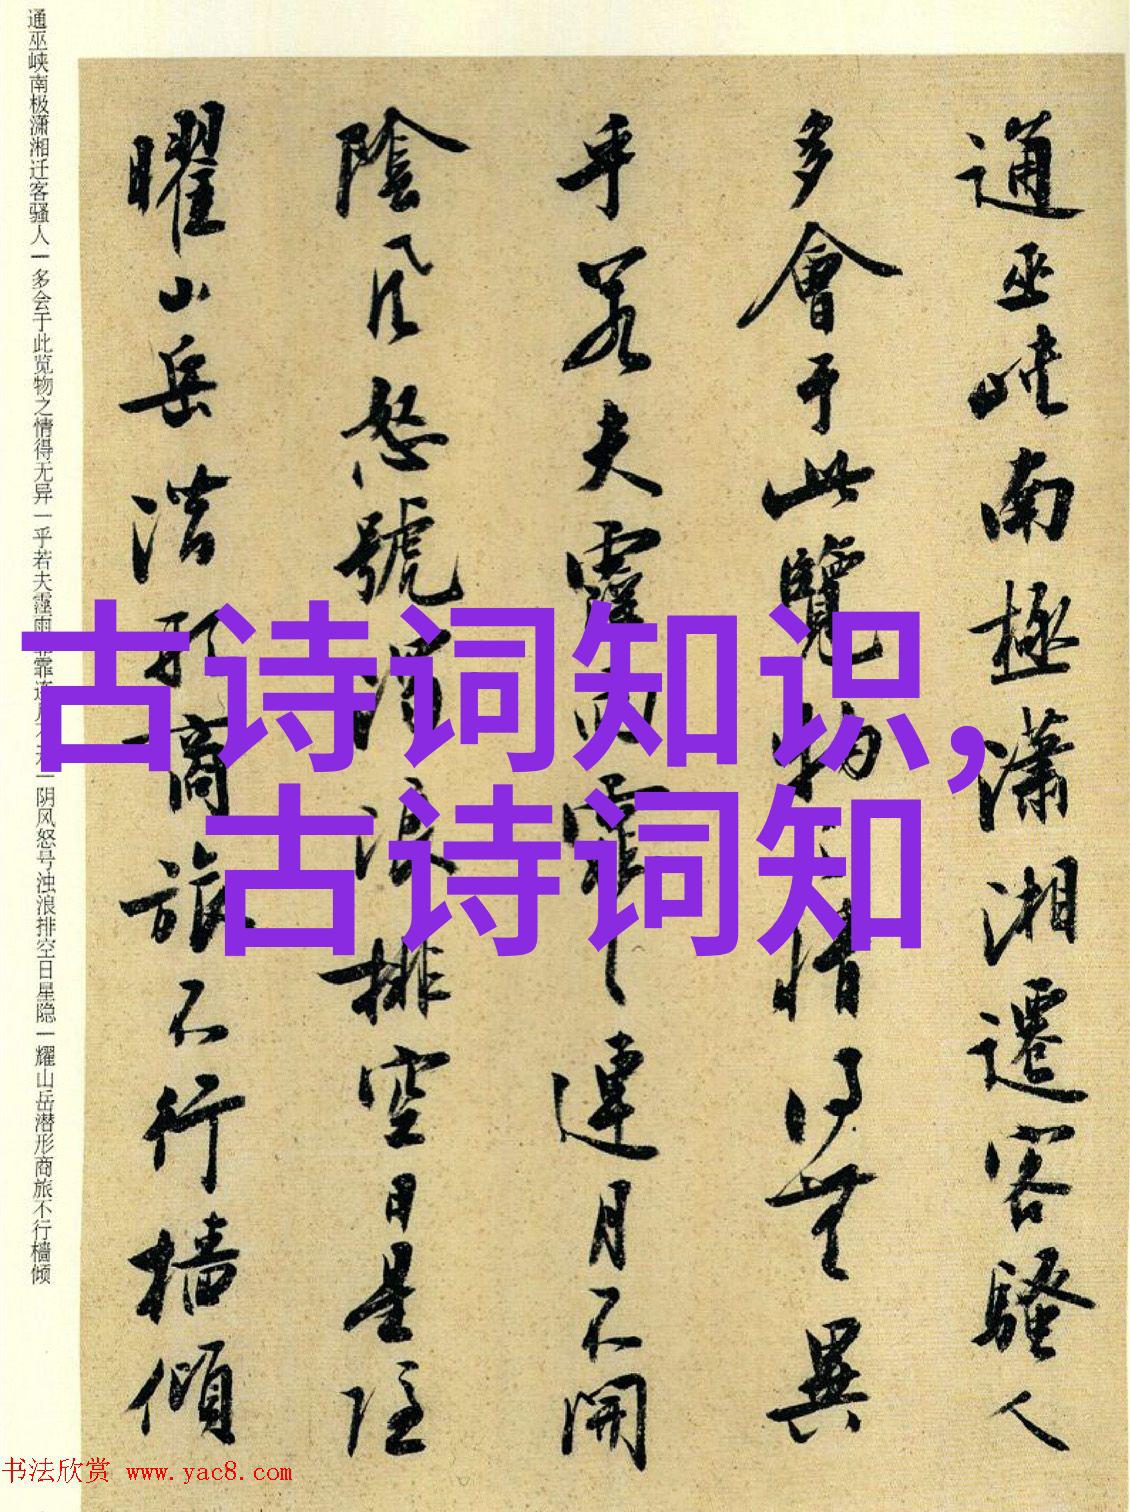 通巫峡南极潇湘迁客骚人一多会于此览物之情得无异一乎若夫霪雨霏霏连月不开一阴风怒号浊浪排空日星隐一耀山岳潜形商旅不行樯倾
通巫峡南極瀟湘遷客騷人
多會于此覽物之情得無異
乎若夫霪雨霏〻連月不開
陰風怒號濁浪排空日星隱
曜山岳潜形商旅不行檣傾
古诗词知识,
古诗词知
书法欣赏 www.yac8.com